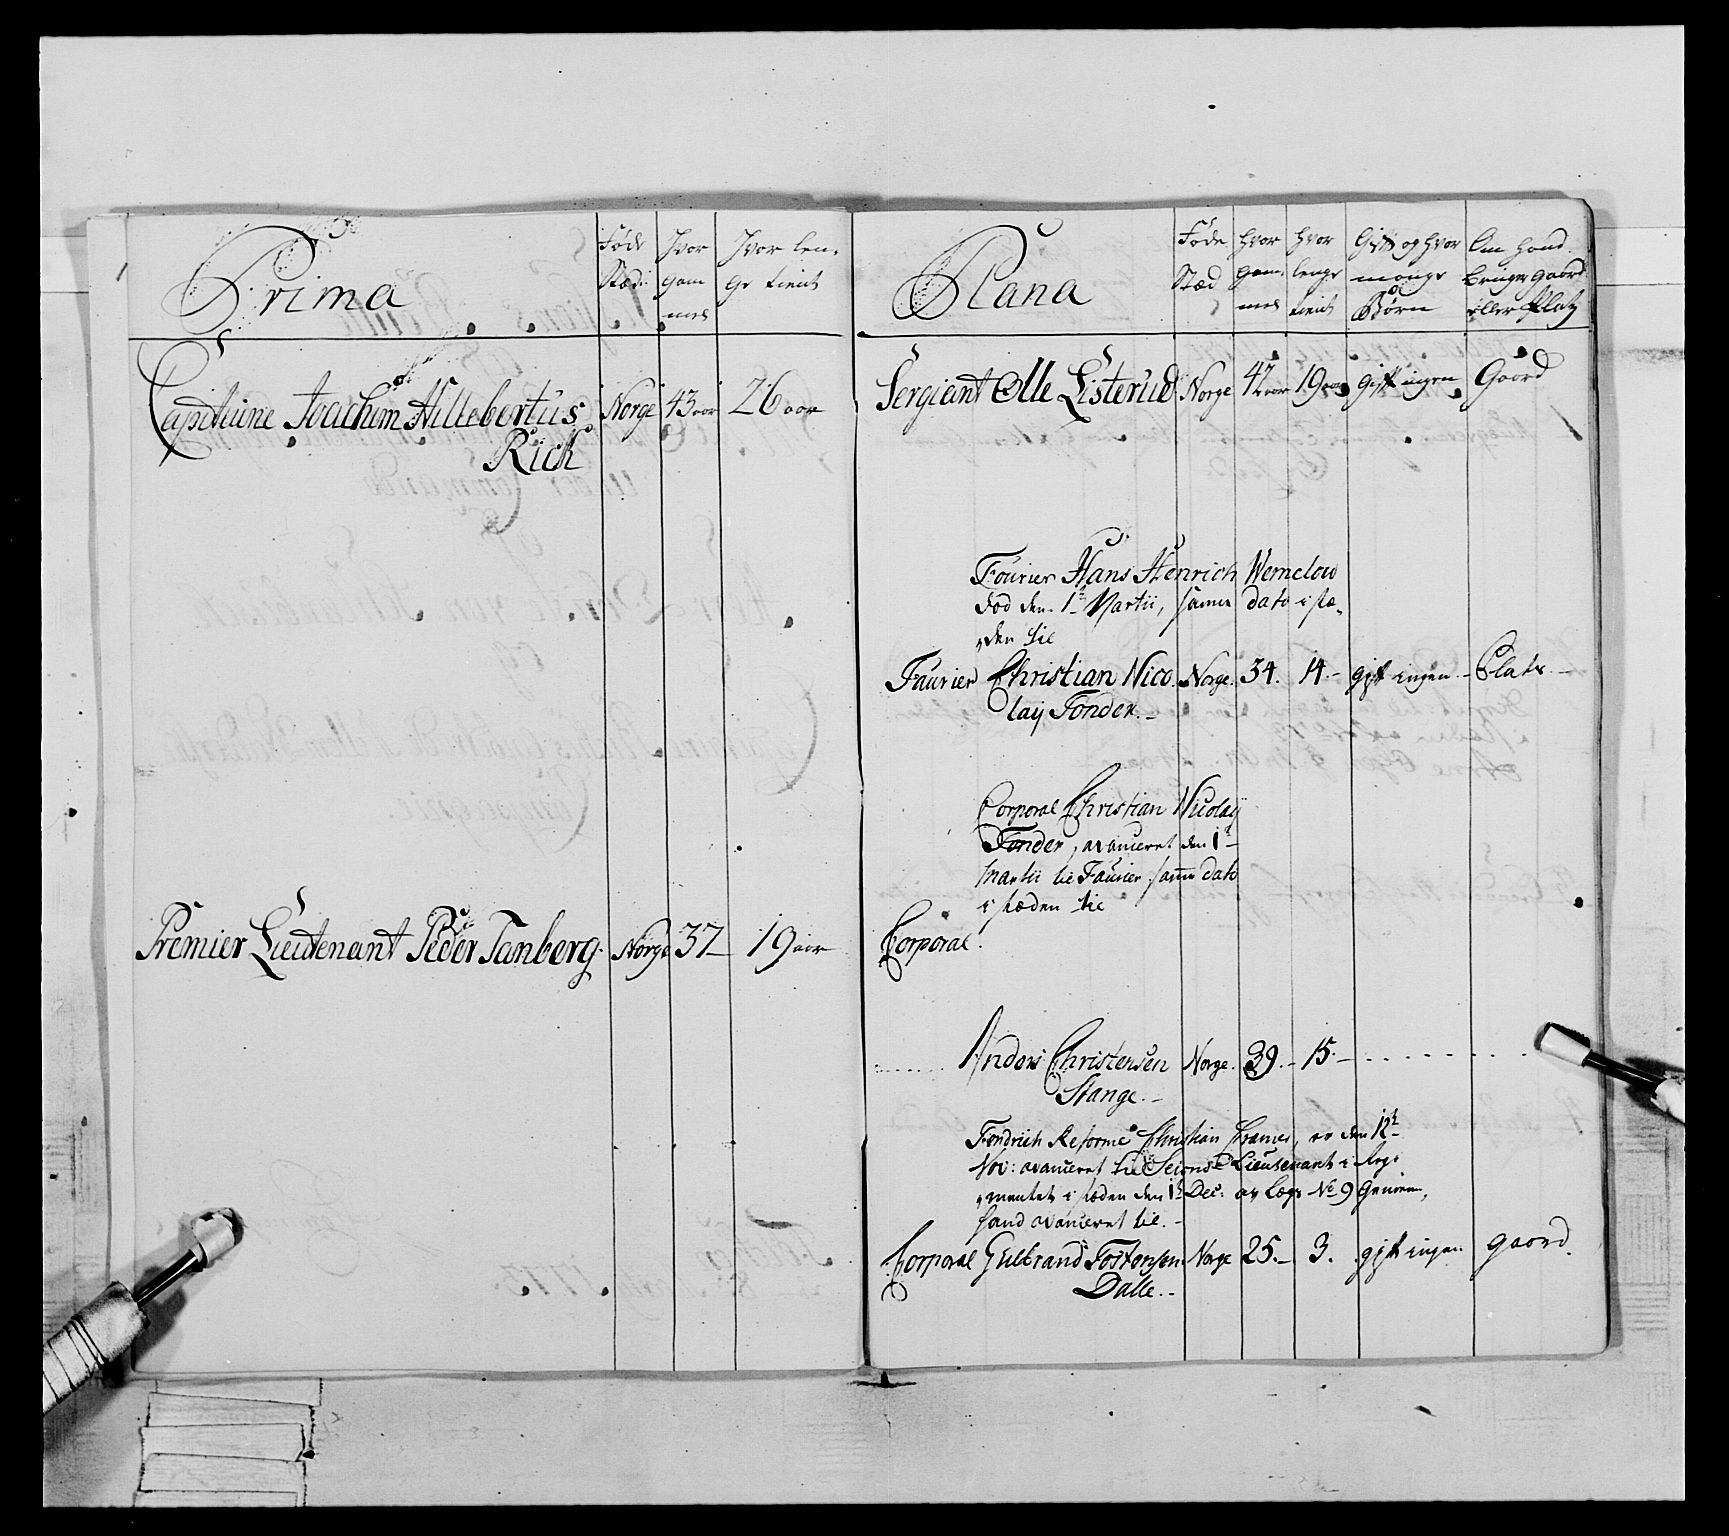 Prima
Føde
Stæd:
Hvor
gam
mel
Hvor len-
ge tient
Capitaine Joachem Hillebertus
Rich
Norge
43 aar
26 aar
Premier Lieutenant Peder Tanberg.
Norge
37
19 aar
Plana
Føde
Stæd
hvor
gam-
mel
hvor
lenge
tient
Gift og hvor
mange
Børn
Om hand
bruger gaard
eller Platz
Sergiant Olle Listerud
Norge
47 aar
19 aar
gift ingen
Gaard
Fourier Hans Henrich Wernelow
død den 1te Martii, samme dato i stæ-
den til
Faurier Christian Nico
laij Tonder.
Norge.
34.
14.
gift ingen.
Plats.
Corporal Christian Nicolaij
Tonder, avanceret den 1te
Martii til Faurier samme dato
i stæden til
Corporal.
Anders Christensen
Stange.
Norge.
39.
15.
Fendrich Reformé Christian Cramer, er den 12te
Nov: avanceret til Second Lieutenant i Regi
mentet i stæden den 1te Dec: av Lægs No 9
fand avanceret til.
Corporal Gulbrand Tostensen
Dalle.
Norge
25.
3.
gift ingen
gaard.